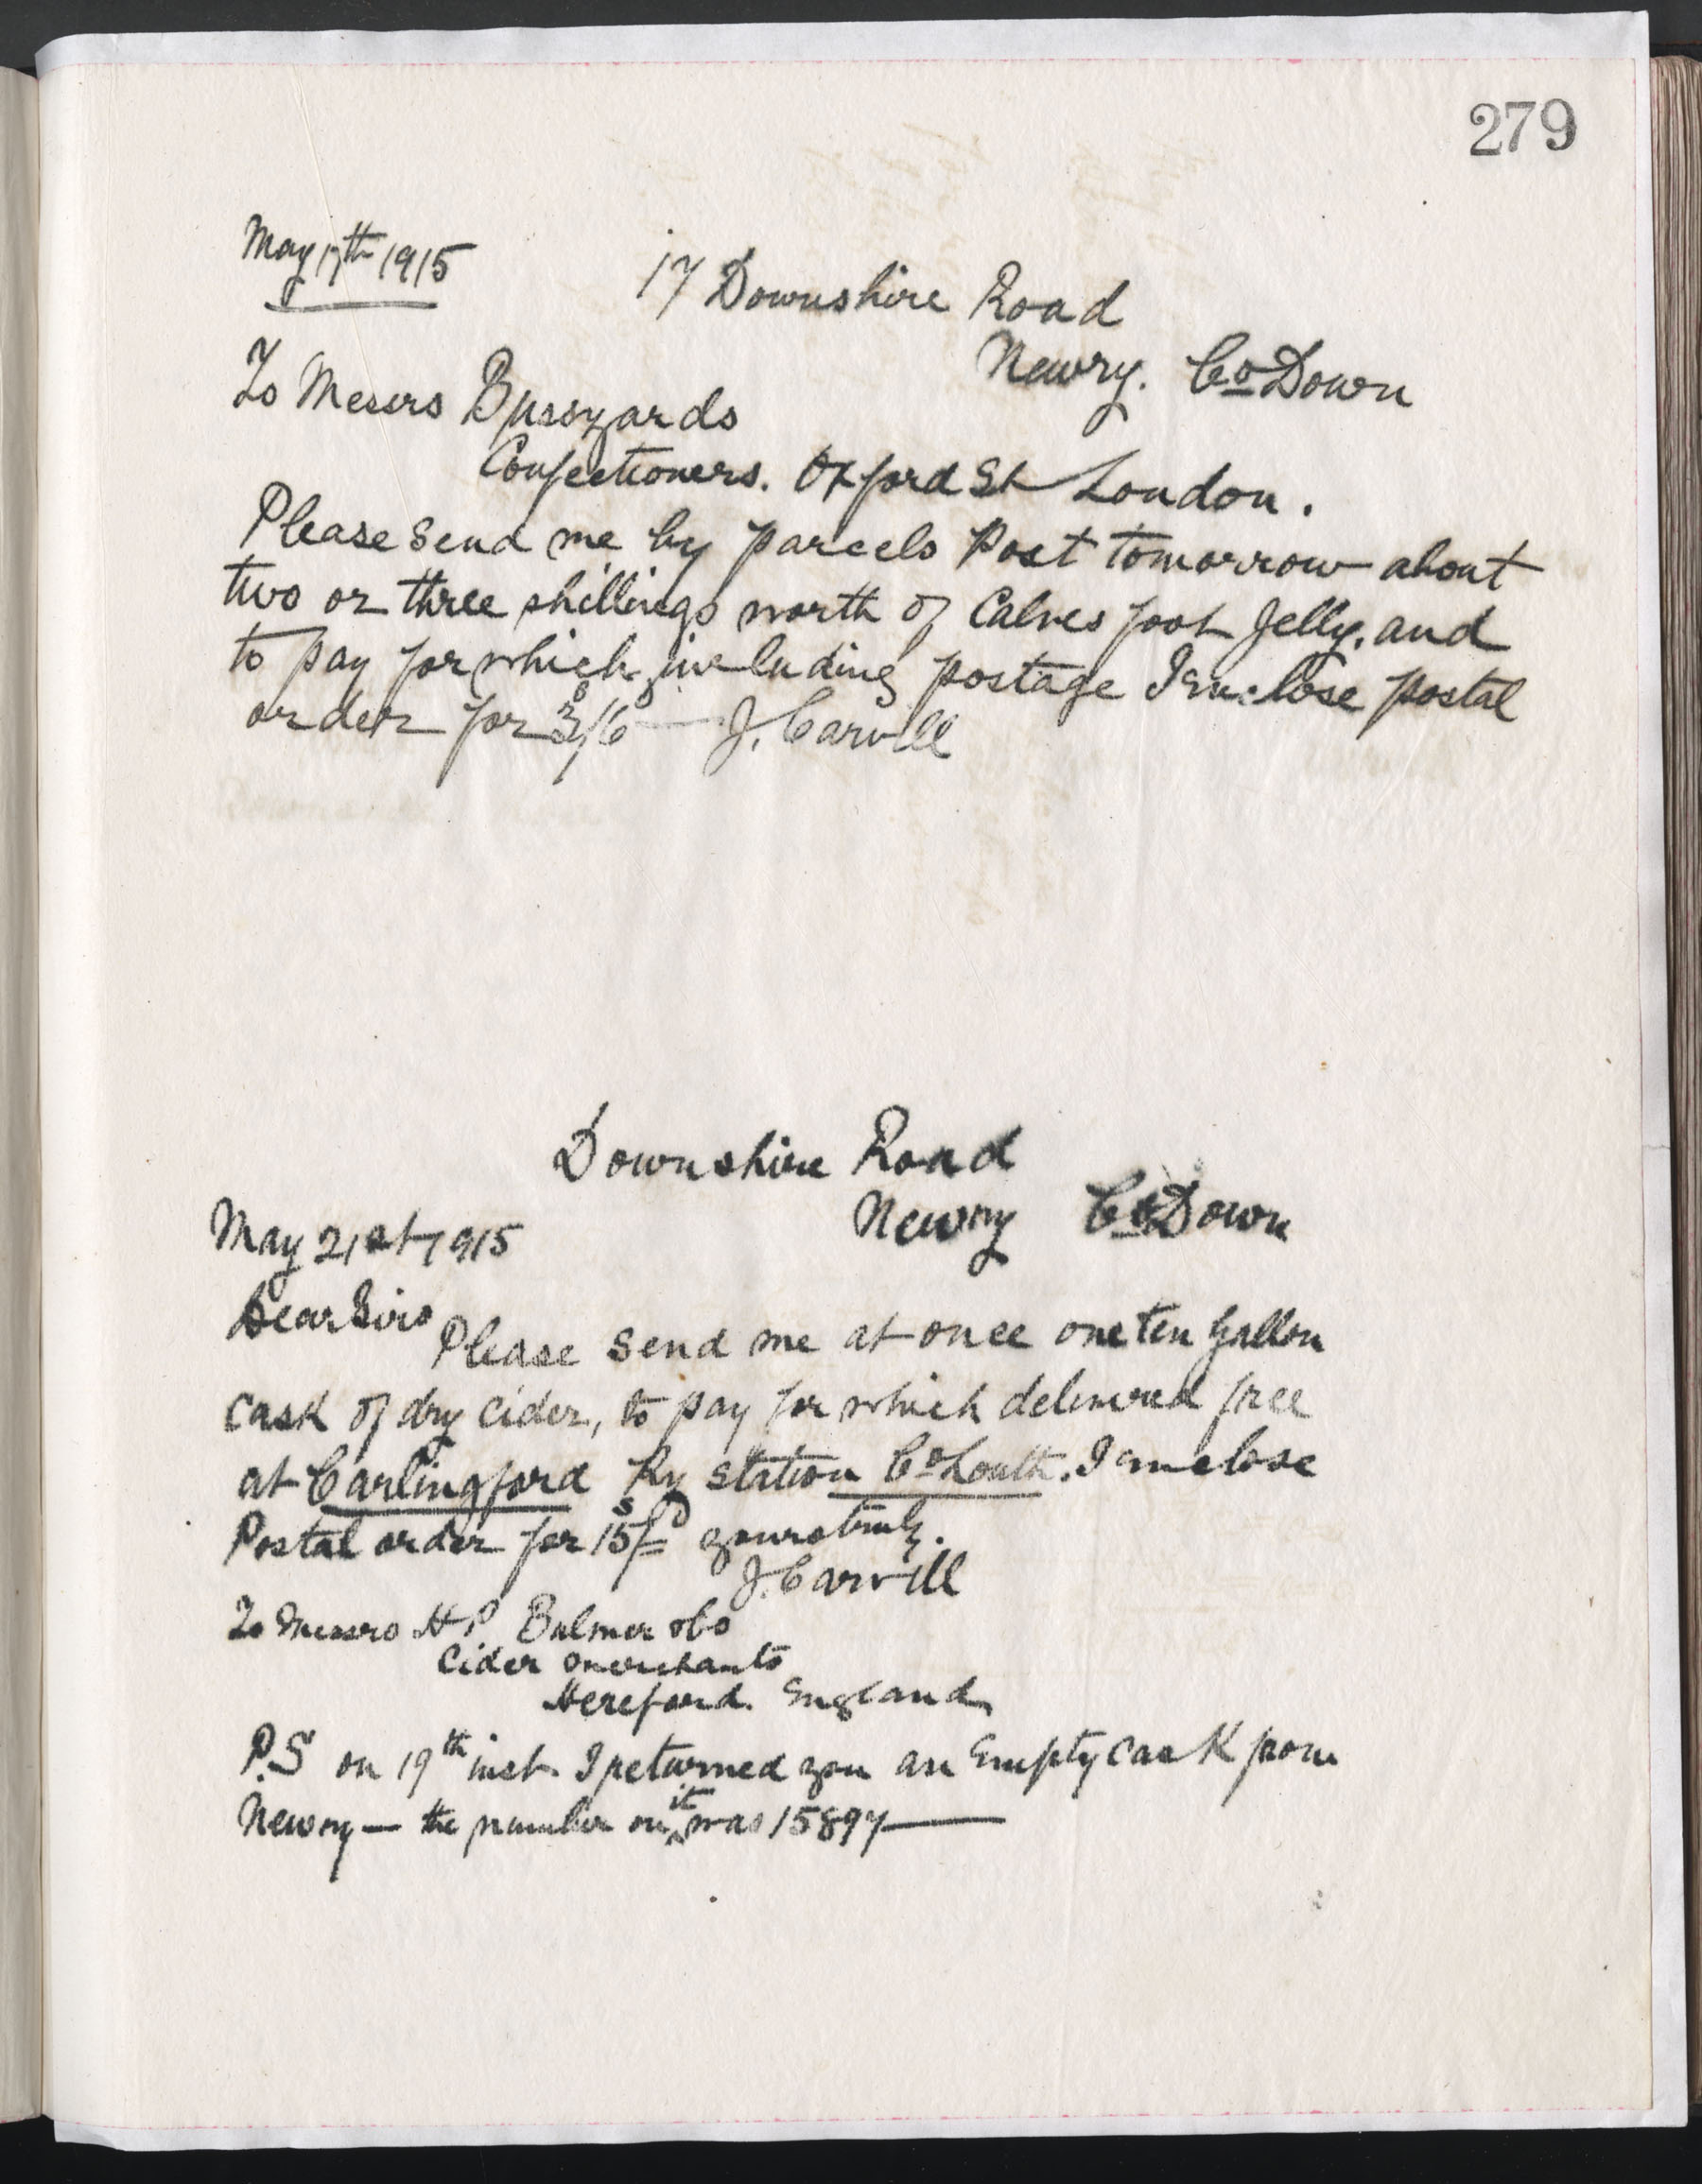 279
May 17th 1915
17 Downshire Road
Newry. Co Down
To Messrs Buszards
Confectioners. Oxford St London.
Please send me by parcels Post tomorrow about
two or three shillings worth of Calves foot Jelly, and
to pay for which, including postage I enclose postal
order for 3s/6d — J. Carvill
Downshire Road
Newry Co Down
May 21st 1915
Dear Sirs
Please send me at once one ten gallon
cask of dry cider, to pay for which delivered free
at Carlingford Ry station Co Louth. I enclose
Postal order for 15s/=d yours truly.
J. Carvill
To Messrs HP Bulmer & Co
Cider merchants
Hereford. England
P.S on 19th inst. I returned you an Empty cask from
Newry — the number on it was 15897 —